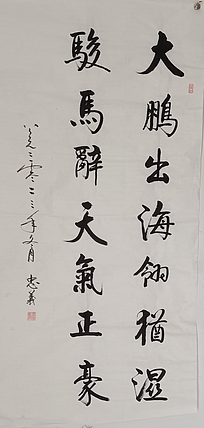 大鵬出海翎猶濕
駿馬辭天氣正豪
二零二三年冬月 忠義